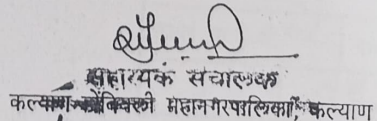 सहाय्यक संचालक
कल्याण डोंबिवली महानगरपालिका, कल्याण